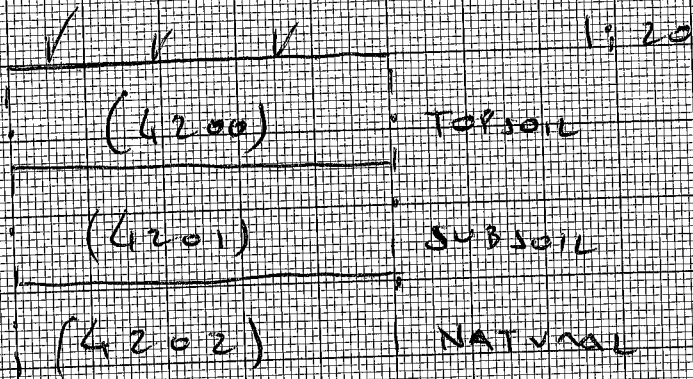 1:20
(4200) TOPSOIL
(4201) SUBSOIL
(4202) NATURAL